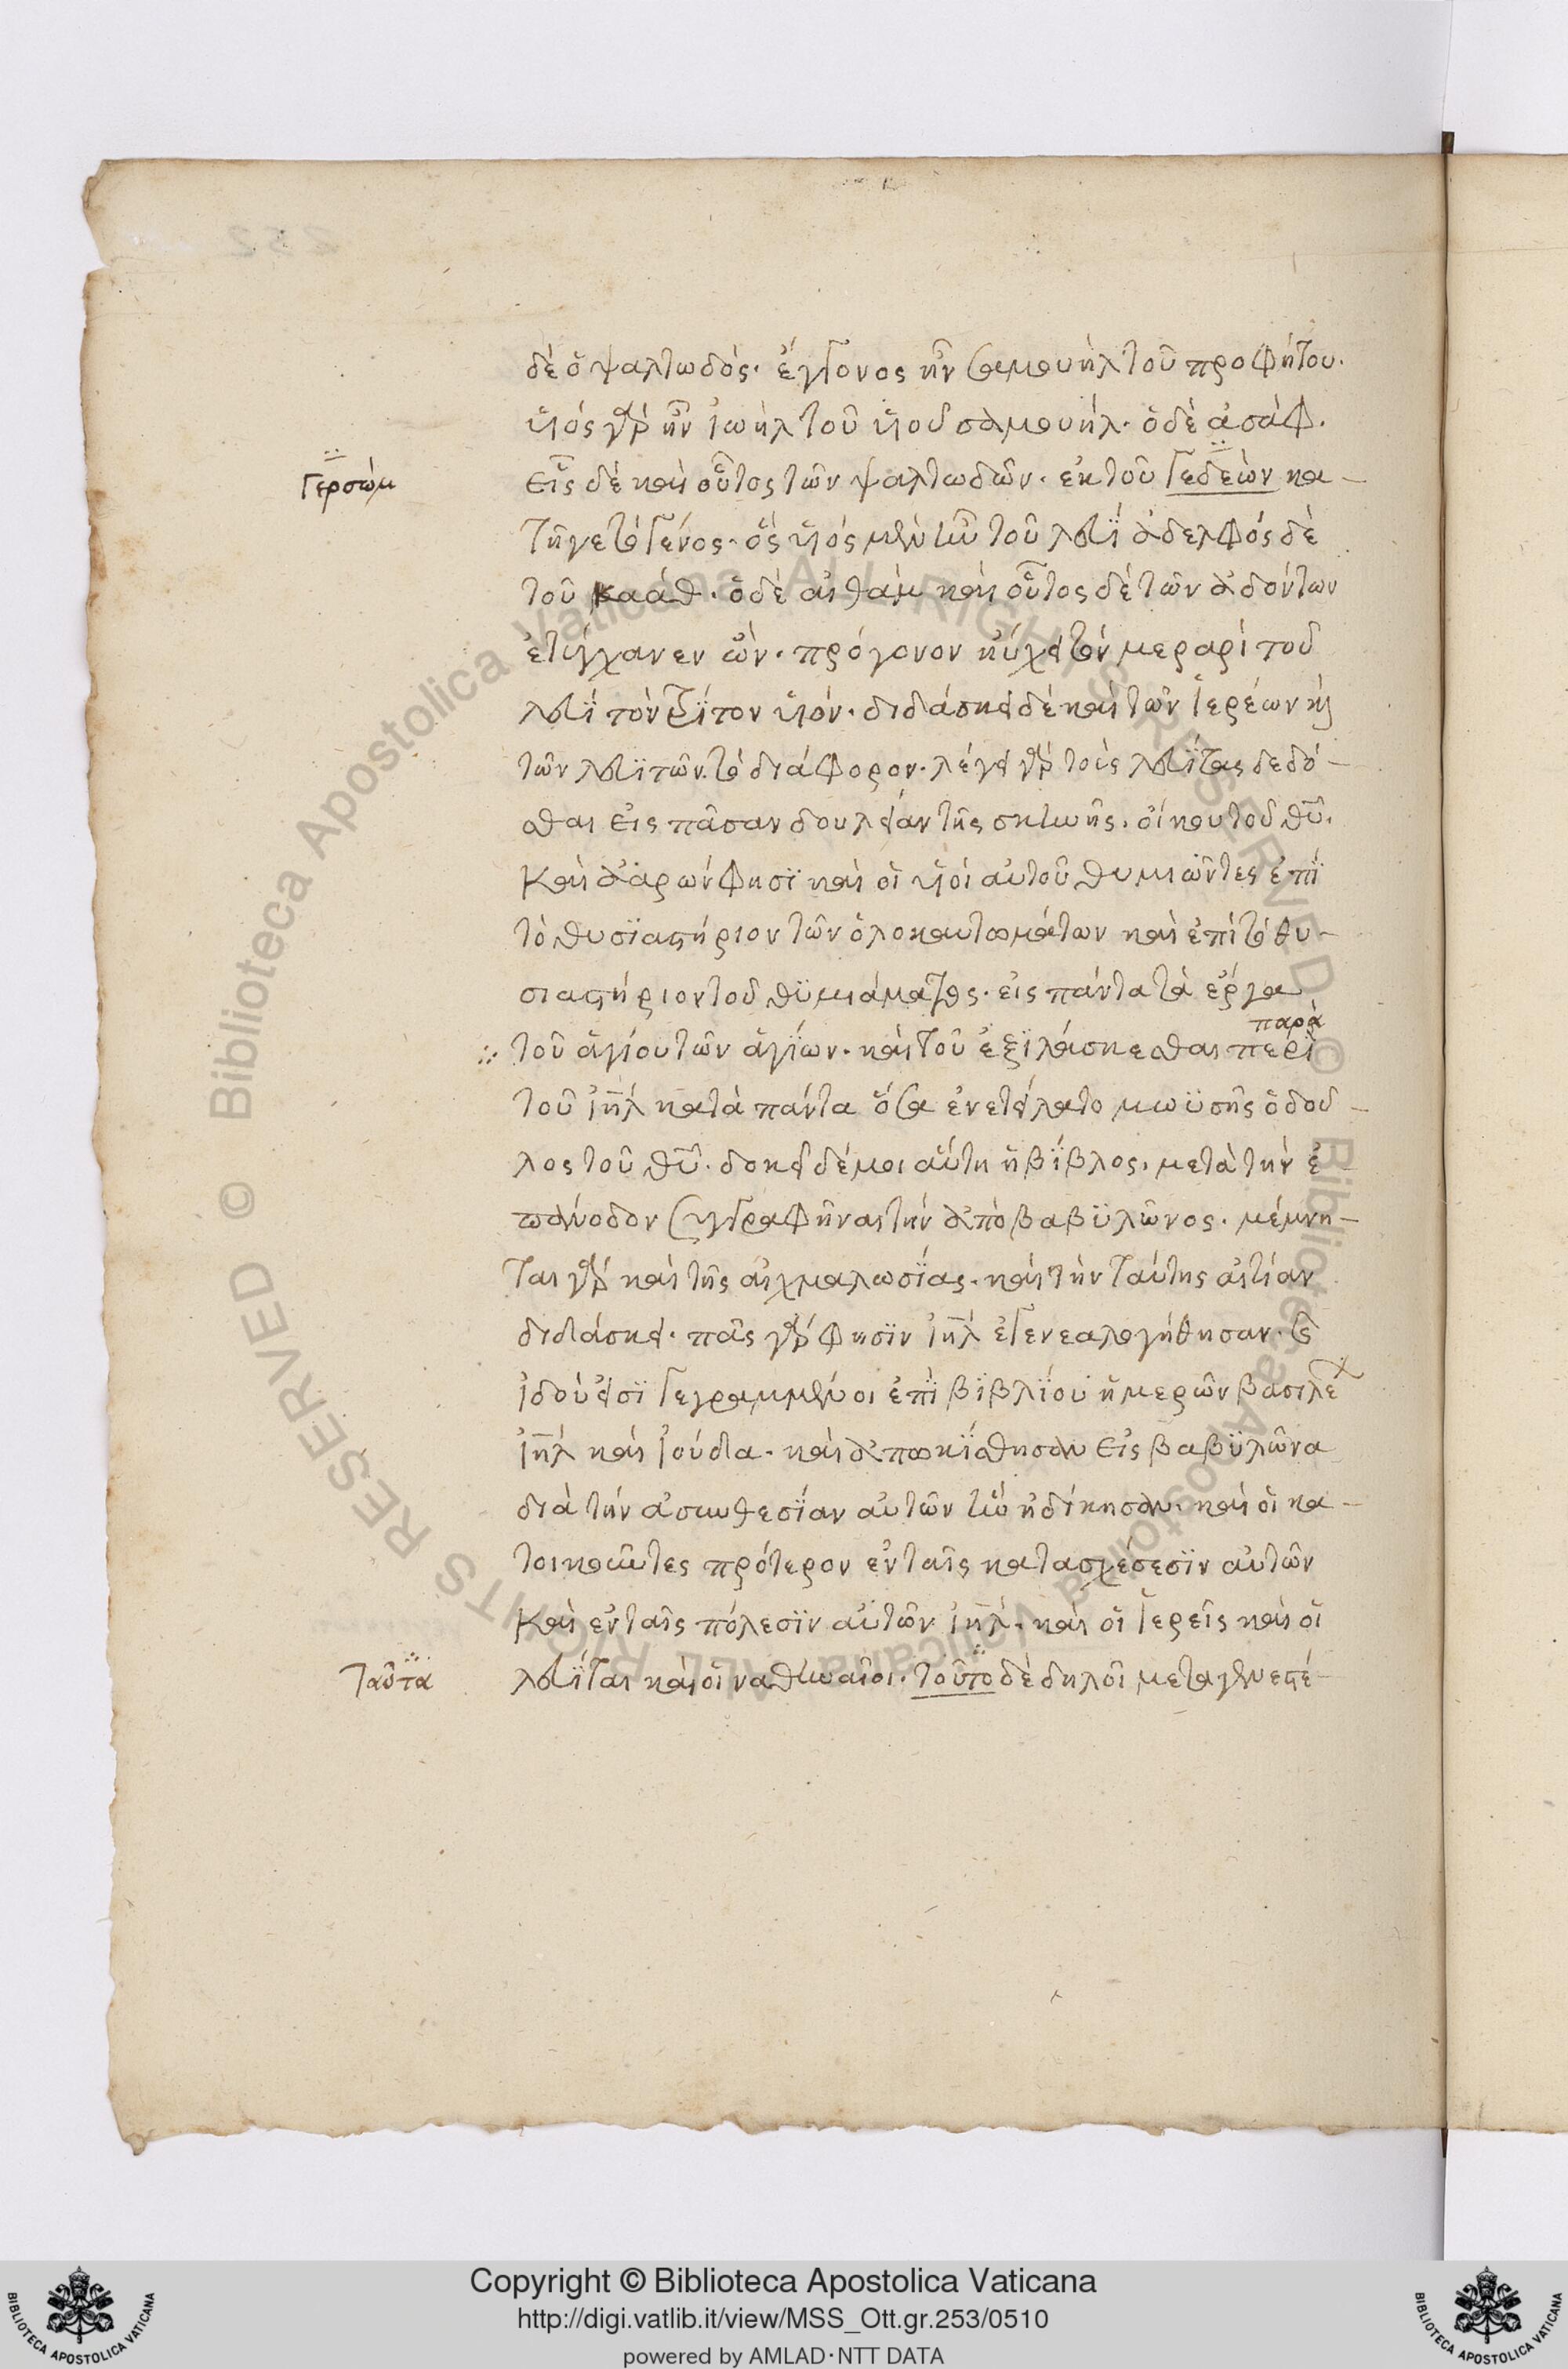 δὲ ὁ ψαλτωδός. ἔγγονος ἦν σαμουὴλ τοῦ προφήτου.
υἱός γὰρ ἦν ἰωὴλ τοῦ υἱοῦ σαμουήλ. ὁ δὲ ἀσάφ.
Γερσὼμ
εἷς δὲ καὶ οὗτος τῶν ψαλτωδῶν. ἐκ τοῦ Γεδεὼν κα-
τῆγε τὸ γένος. ὃς υἱός μὲν ἦν τοῦ λευῒ ἀδελφός δὲ
τοῦ καάθ. ὁ δὲ αἰθὰμ καὶ οὗτος δὲ τῶν ἀδόντων
ἐτύγχανεν ὤν. πρόγονον ηὔχει τὸν μεραρὶ τοῦ
λευῒ τὸν τρίτον υἱόν. διδάσκει δὲ καὶ τῶν ἱερέων κὶ
τῶν λευϊτῶν τὸ διάφορον. λέγει γὰρ τοὺς λευΐτας δεδό-
σθαι εἰς πᾶσαν δουλείαν τῆς σκηνῆς. οἴκου τοῦ θῦ.
Καὶ ἀαρών φησῒ καὶ οἱ υἱοὶ αὐτοῦ θυμιῶντες ἐπῒ
τὸ θυσϊαστήριον τῶν ὁλοκαυτωμάτων καὶ ἐπὶ τὸ θυ-
σιαστήριον τοῦ θϋμιάματος. εἰς πάντα τὰ ἔργα
παρὰ
τοῦ ἁγίου τῶν ἁγΐων. καὶ τοῦ ἐξϊλάσκεσθαι περὶ
τοῦ ἰηλ κατὰ πάντα ὅσα ἐνετείλατο μωϋσῆς ὁ δοῦ-
λος τοῦ θῦ. δοκεῖ δέ μοι αὕτη ἡ βΐβλος. μετὰ τὴν ἐ-
πάνοδον συγγραφῆναι τὴν ἀπὸ βαβϋλῶνος. μέμνη-
ται γὰρ καὶ τῆς αἰχμαλωσΐας. καὶ τὴν ταύτης αἰτίαν
διδάσκει. πᾶς γὰρ φησῒν ἰηλ ἐγενεαλογήθησαν. κ
ἰδοὺ εἰσῒ γεγραμμένοι ἐπῒ βϊβλΐου ἡμερῶν βασιλε
ἰηλ καὶ ἰούδα. καὶ ἀπῳκΐσθησαν εἰς βαβϋλῶνα
διὰ τὴν ἀσυνθεσΐαν αὐτῶν ἣν ἠδίκησαν. καὶ οἱ κα-
τοικοῦντες πρότερον ἐν ταῖς κατασχέσεσϊν αὐτῶν
Καὶ ἐν ταῖς πόλεσϊν αὐτῶν ἰηλ. καὶ οἱ ἱερεῖς καὶ οἱ
Ταῦτα
λευΐται καὶ οἱ ναθιναῖοι. τοῦτο δὲ δηλοῖ μεταγενεστέ-
Copyright © Biblioteca Apostolica Vaticana
http://digi.vatlib.it/view/MSS_Ott.gr.253/0510
powered by AMLAD·NTT DATA